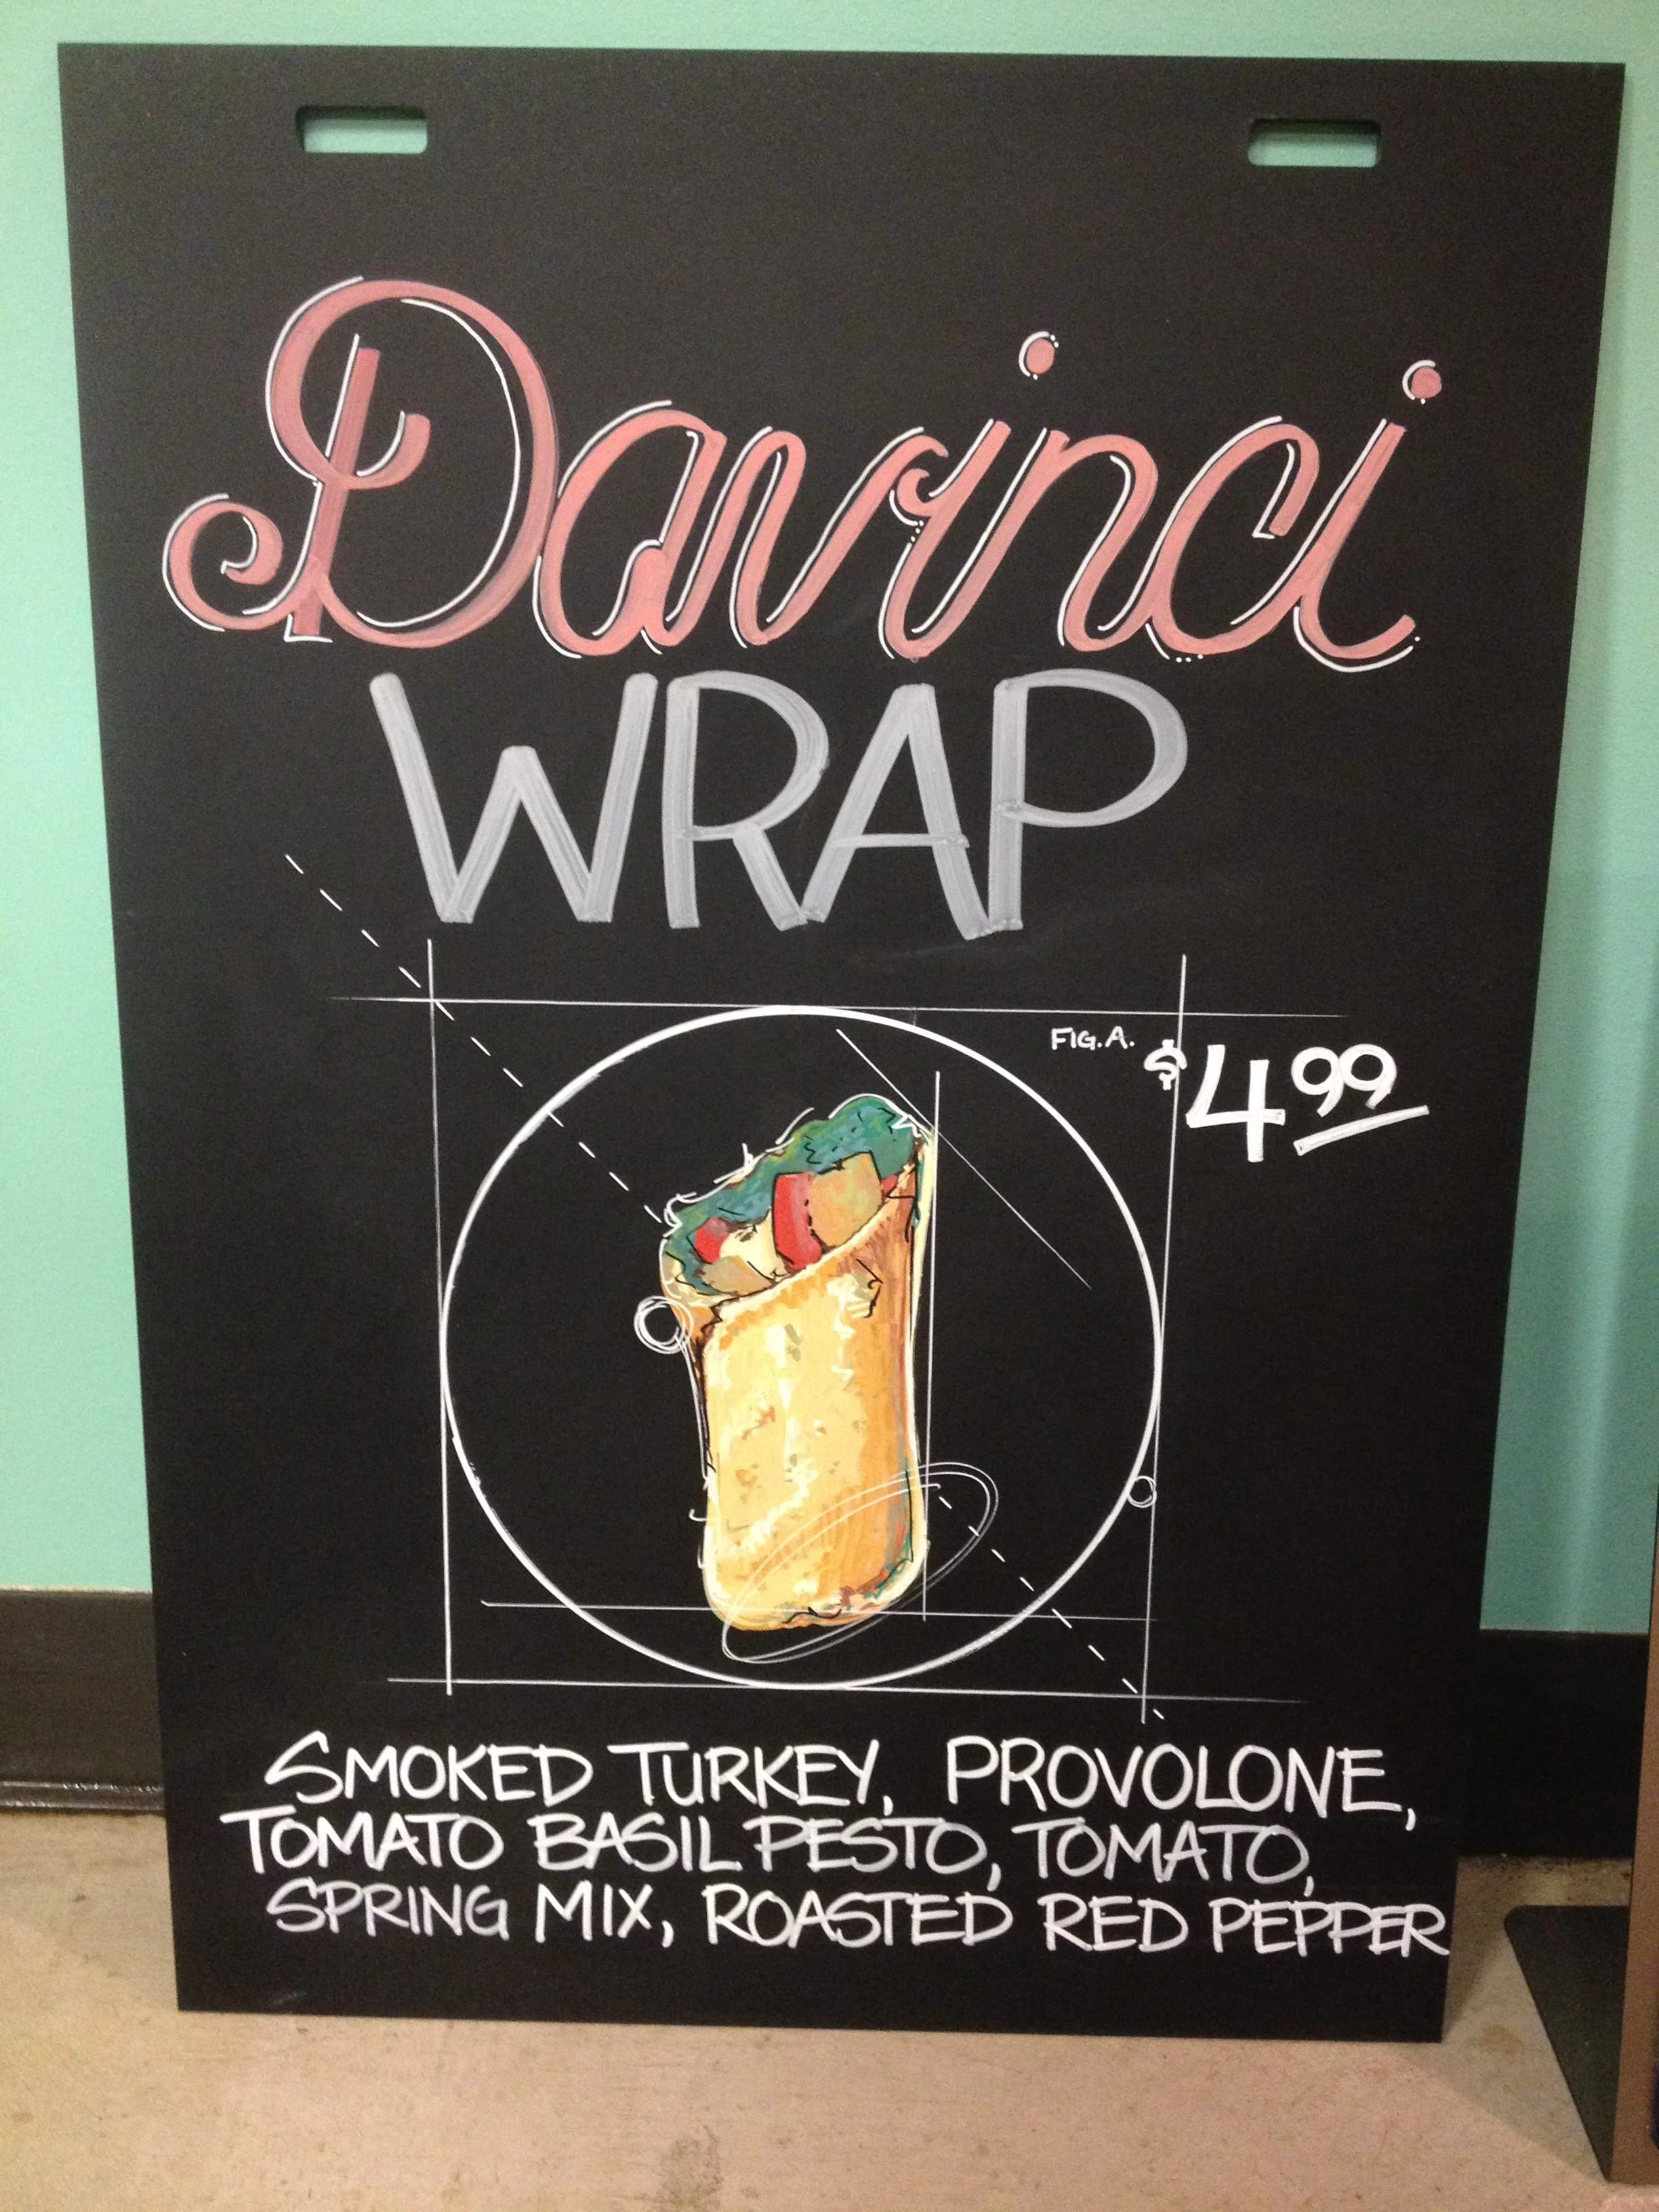 Davinci
WRAP
FIG.A.
$4.99
SMOKED TURKEY, PROVOLONE,
TOMATO BASIL PESTO, TOMATO,
SPRING MIX, ROASTED RED PEPPER